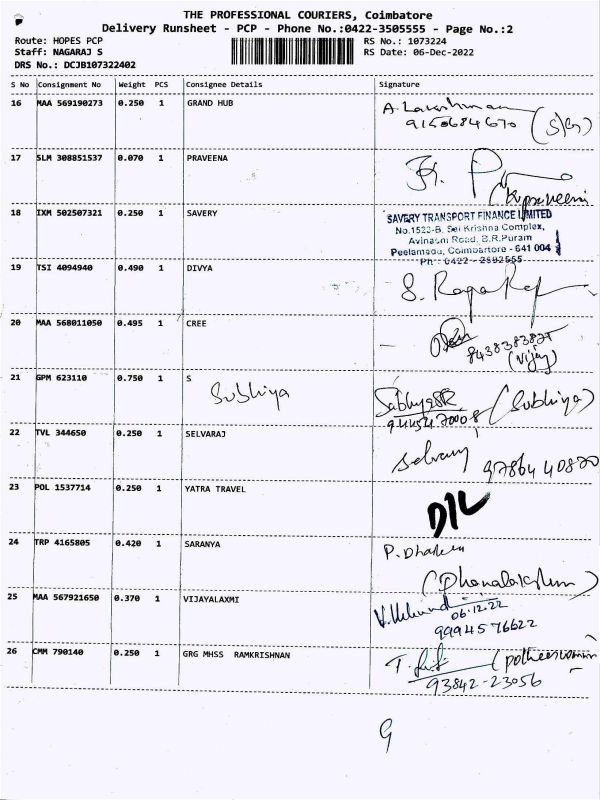 THE PROFESSIONAL COURIERS, Coimbatore
Delivery Runsheet - PCP - Phone No.:0422-3505555 - Page No.:2
Route: HOPES PCP RS No.: 1073224
Staff: NAGARAJ S RS Date: 06-Dec-2022
DRS No.: DCJB107322402
S No Consignment No Weight PCS Consignee Details Signature
16 MAA 569190273 0.250 1 GRAND HUB A. Lakshmanan
9150684670 (S/G)
17 SLM 308851537 0.070 1 PRAVEENA
(K.praveeni
18 IXM 502507321 0.250 1 SAVERY SAVERY TRANSPORT FINANCE LIMITED
No.1523-B, Sri Krishna Complex,
Avinashi Road, B.R.Puram
Peelamedu, Coimbatore - 641 004
Ph : 0422 - 2592555
19 TSI 4094940 0.490 1 DIVYA S.
20 MAA 568011050 0.495 1 CREE
(vijay)
21 GPM 623110 0.750 1 S
Subhiya (Subhiya)
9445470008
22 TVL 344650 0.250 1 SELVARAJ Selvaraj
97864 40870
23 POL 1537714 0.250 1 YATRA TRAVEL
24 TRP 4165805 0.420 1 SARANYA P.
(Dhanalakshmi)
25 MAA 567921650 0.370 1 VIJAYALAXMI
06.12.22
9994576622
26 CMM 790140 0.250 1 GRG MHSS RAMKRISHNAN
93842-23056
9